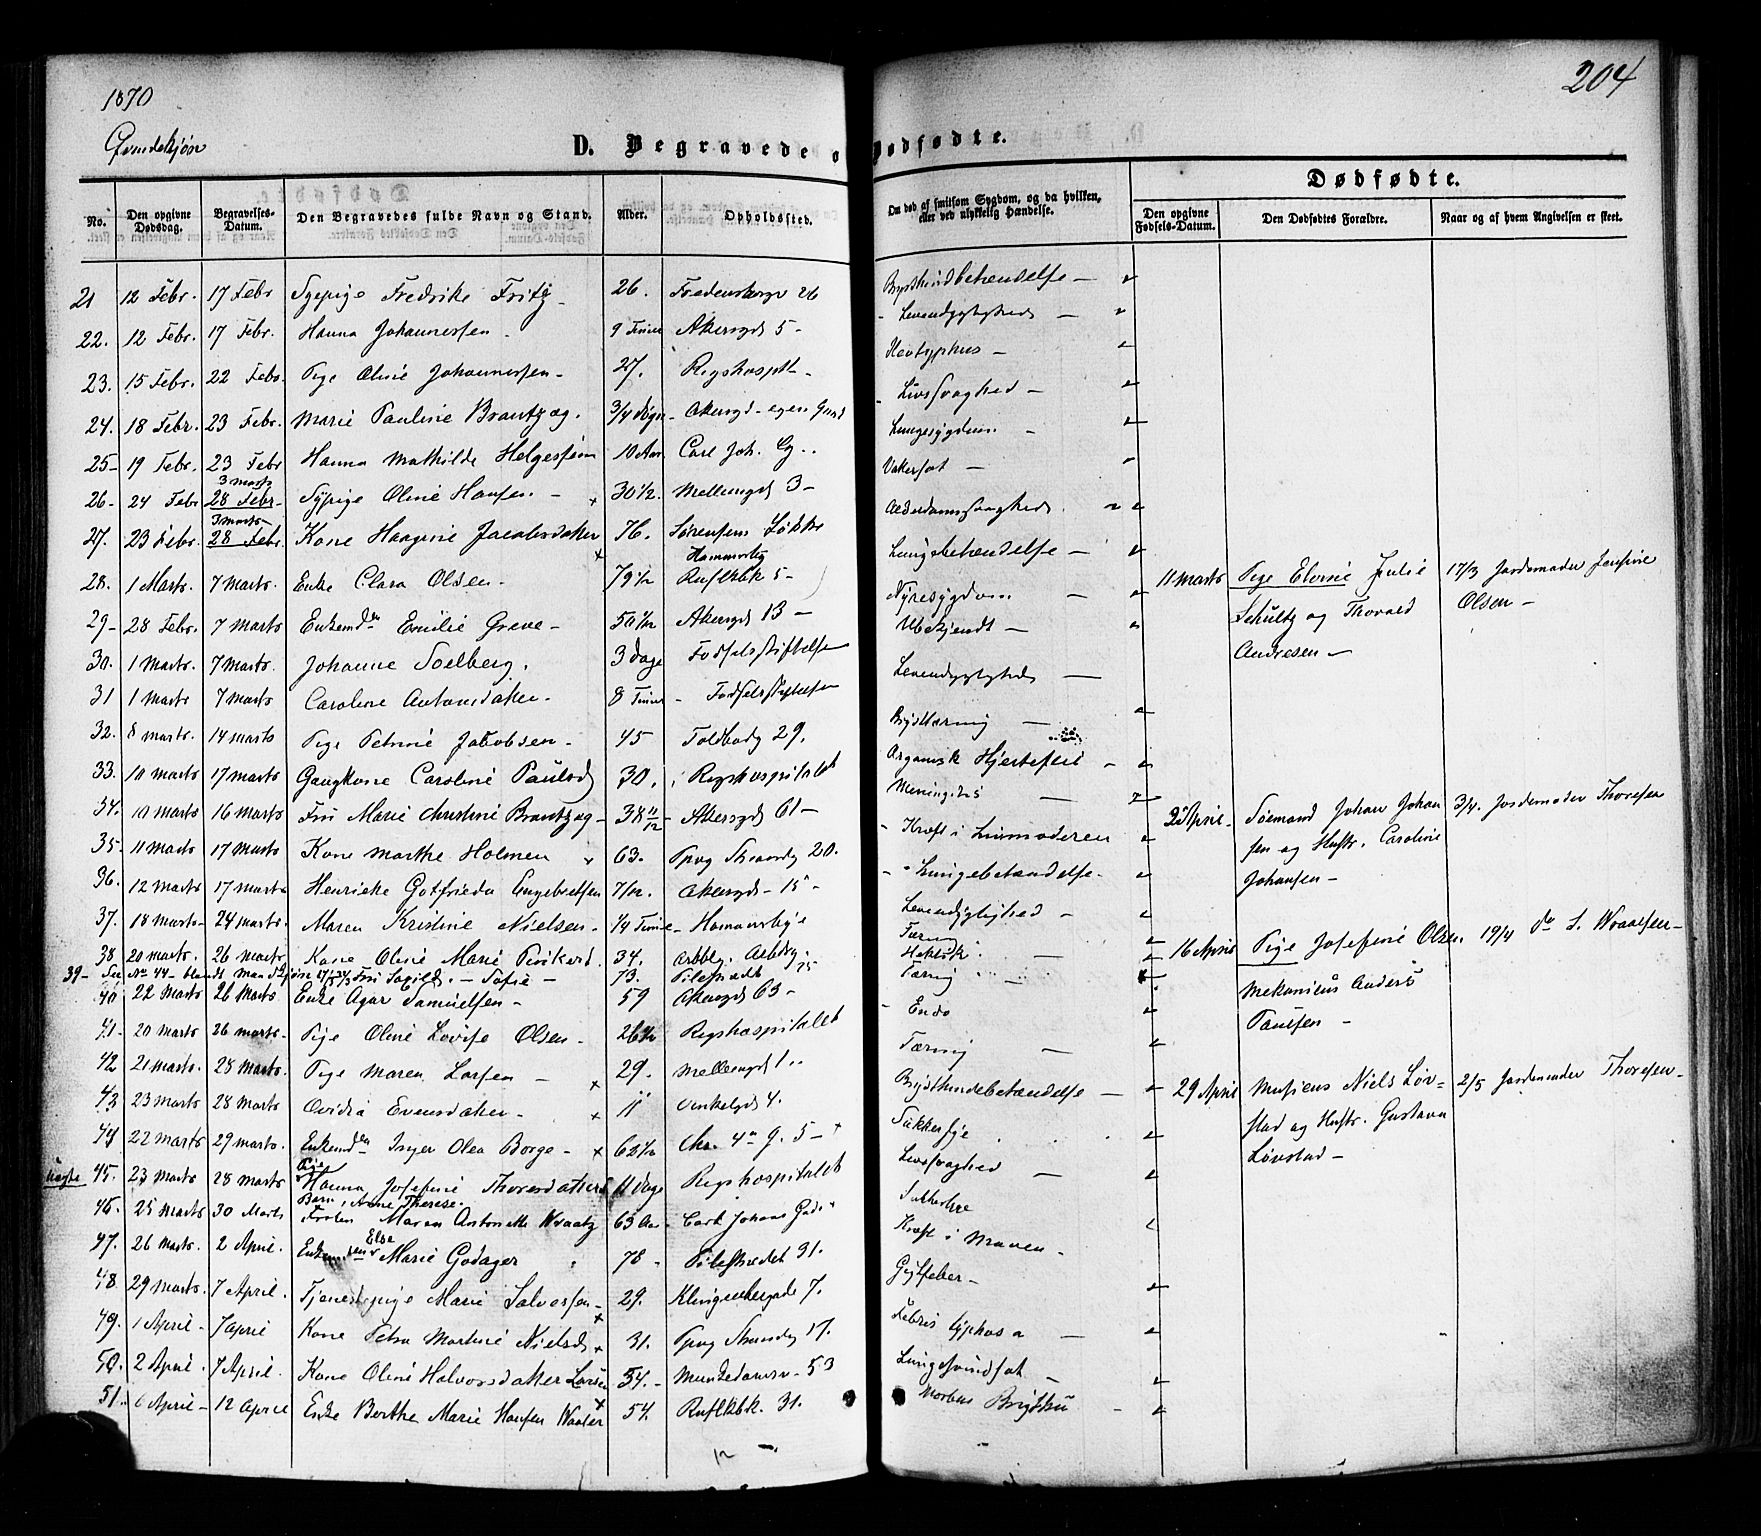 1870
204
Qvindekjøn
D. Begravede o
Dødfødte.
No.
Den opgivne Dødsdag.
Begravelses-Datum.
Den Begravedes fulde Navn og Stand.
Alder.
Opholdssted.
Om død af smitsom Sygdom, og da hvilken, eller ved ulykkelig Hændelse.
Dødfødte.
Den opgivne Fødsels-Datum.
Den Dødfødtes Forældre.
Naar og af hvem Angivelsen er skeet.
21 12 Febr. 17 Febr Sypige Fredrikke Fritz - 26. Fredensborgv 26
22. 12 Febr. 17 Febr. Hanna Johannessen - 9 Timer Akersgd 5 -
23. 15 Febr. 22 Febr. Pige Oline Johannessen - 27. Rigshospt -
24. 18 Febr. 23 Febr. Marie Pauline Brantzæg. 3/4 døgn - Akersgd - egen Gaard Livssvaghed -
25 - 19 Febr. 23 Febr Hanna Mathilde Helgesen 10 Aar Carl Joh. G..
3 Marts
26 - 24 Febr 28 Febr - Sypige Oline Hansen. - x 30 1/2. Mellemgd 3 -
3 Marts -
27. 23 Febr. 28 Febr. Kone Jacobsdatter x 76. Sørensens Løkke
28. 1 Marts. 7 Marts. Enke Clara Olsen - 79 1/2
29 - 28 Febr. 7 Marts Enkemden Emilie Greve - 50 1/2 Akersgd 13 -
30. 1 Marts. 7 Marts. Johanne Solberg. 3 dage Fødselsstiftelsen
31 1 Marts 7 Marts Caroline Antonsdatter - 8 Timer - Fødselsstiftelsen
32. 8 Marts. 14 Marts Pige Petrine Jakobsen - 45 Toldbodg 29.
33. 10 Marts 17 Marts Gangkone Caroline Paulsd 30. Rigshospitalet
34. 10 Marts 16 Marts Fru Marie Christine Brantzæg - 38 11/12 - Akersgd 61 -
35 - 11 Marts 17 Marts Kone Marthe Holmen x 63. Tpvg Strandg 20.
36. 12 Marts 17 Marts Henrikke Gotfrieda Engebretsen 7/12. Akersgd - 15 -
37. 18 Marts - 24 Marts. Maren Kristine Nielsen - 1/4 Time - Homansby
38 20 Marts. 26 Marts. Kone Oline Marie 34.
39 - Se No 44 - blandt Mandkjøn - Sofie - 73. Pilestrædet 75
40 22 Marts 26 Marts Enke Agar Samuelsen - 59 Akersgd 63 -
41 - 20 Marts 26 Marts - Pige Oline Lovise Olsen - 26 1/2 Rigshospitalet
42 21 Marts. 28 Marts. Pige Maren Larsen - x 29. Mellemgd 1..
43 23 Marts 28 Marts Ovidia Evensdatter - x 11 Vinkelgd 4.
44 22 Marts 29 Marts. Enkemden Inger Olea Borge - x 62 1/2 Chr. 4de G. 5 - x
uægte 45. 23 Marts 28 Marts Pige Hanna Josefine Thoresdatters 11 dage Rigshospitalet
Barn, Anne Therese.
46. 25 Marts 30 Marts Frøken Maren Antonette Kraatz 63 Aar - Carl Johans Gade
Else
47. 26 Marts. 2 April. Marie Godager 78 - Pilestrædet 31.
48. 29 Marts. 7 April. Tjenestepige Marie Salvesen - x 29. Klingenberggade 7.
49. 1 April - 7 April Kone Petra Martine Nielsd x 31. Tpvg Strandg 17.
50. 2 April. 7 April. Kone Oline Halvorsdatter Larsen 54. - Munkedamsv - 53
51. 6 April - 12 April Enke Berthe Marie Hansen Waaler x 54. Rusløkbk. 31.
Brysthindebetændelse -
- Levendygtighed -
Livssvaghed -
Lungesygdom -
Vatersot -
Alderdomssvaghed.
Lungebetændelse -
Nyresygdom -
Ubekjendt -
Levendygtighed -
Brysttæring -
Organisk Hjertefeil -
Meningitis -
- Kræft i Livmoderen
- Lungebetændelse.
Levendygtighed -
Tæring
Hektisk
Tæring -
- Endo
Tæring -
Brysthindebetændelse -
Sukkersyge
Livssvaghed -
Kræft i Maven -
Gigtfeber -
Febris typhosa -
Lungesvindsot -
Morbus Brightii -
11 Marts Pige Elvine Julie 17/3 Jordemoder Josefine
Schultz og Thorvald Olsen -
Andresen -
2 April - Sømand Johan Johan 3/4. Jordemoder Thoresen
sen og Hustr. Caroline
Johansen -
16 April Pige Josefine Olsen. 19/4 do S. Waalsen -
Mekanicus Anders
Paulsen -
29 April Musicus Niels Løv- 2/5 Jordemoder Thoresen -
stad og Hustr. Gustava
Løvstad -